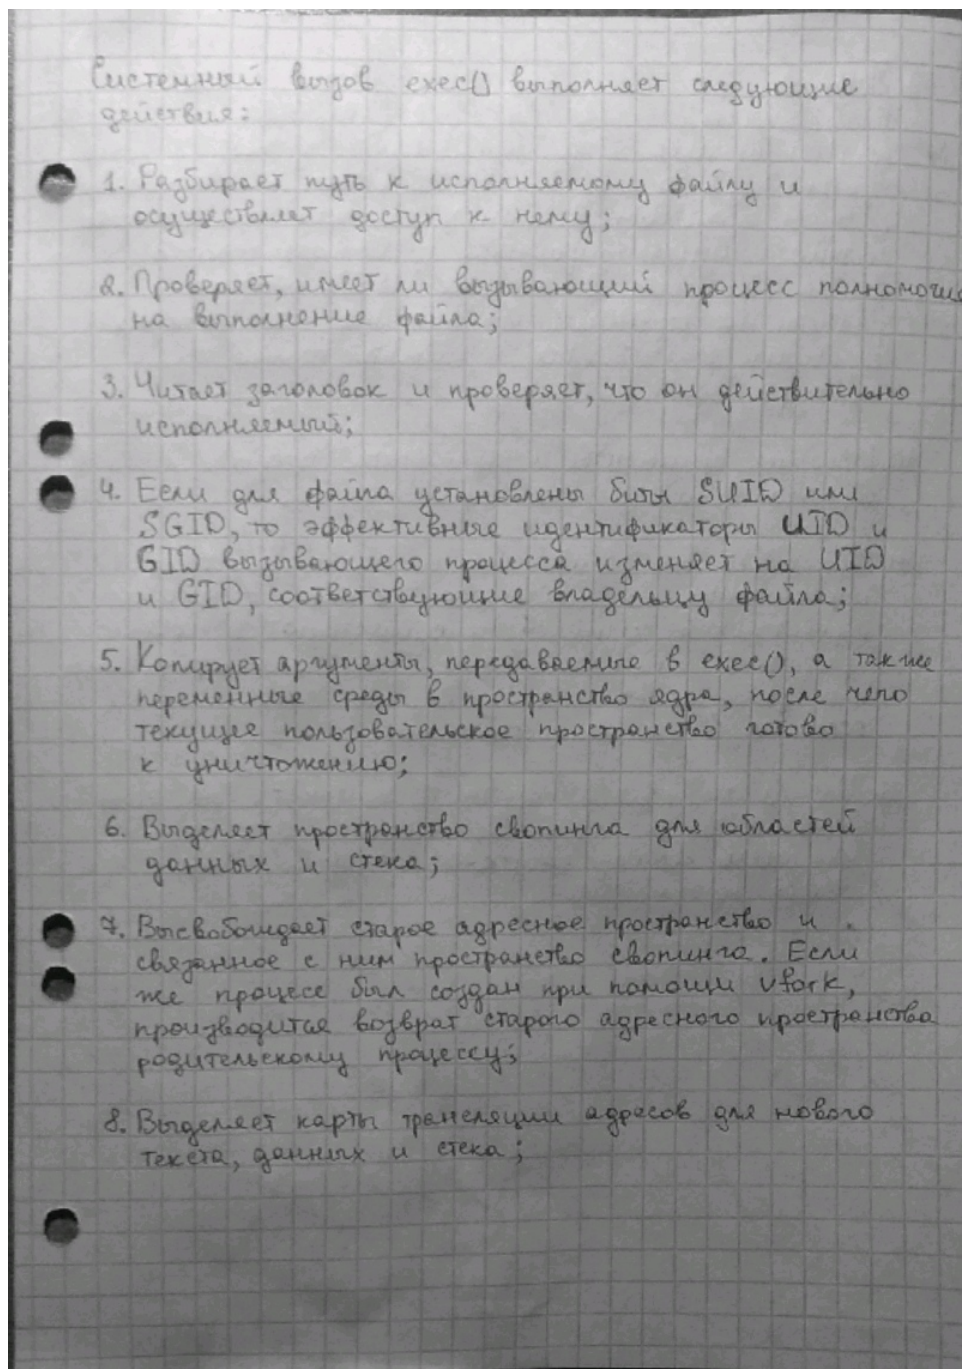 Системный вызов exec() выполняет следующие
действия:
1. Разбирает путь к исполняемому файлу и
осуществляет доступ к нему;
2. Проверяет, имеет ли вызывающий процесс полномочия
на выполнение файла;
3. Читает заголовок и проверяет, что он действительно
исполняемый;
4. Если для файла установлены биты SUID или
SGID, то эффективные идентификаторы UID и
GID вызывающего процесса изменяет на UID
и GID, соответствующие владельцу файла;
5. Копирует аргументы, передаваемые в exec(), а также
переменные среды в пространство ядра, после чего
текущее пользовательское пространство готово
к уничтожению;
6. Выделяет пространство свопинга для областей
данных и стека;
7. Высвобождает старое адресное пространство и
связанное с ним пространство свопинга. Если
же процесс был создан при помощи vfork,
производится возврат старого адресного пространства
родительскому процессу;
8. Выделяет карты трансляции адресов для нового
текста, данных и стека;